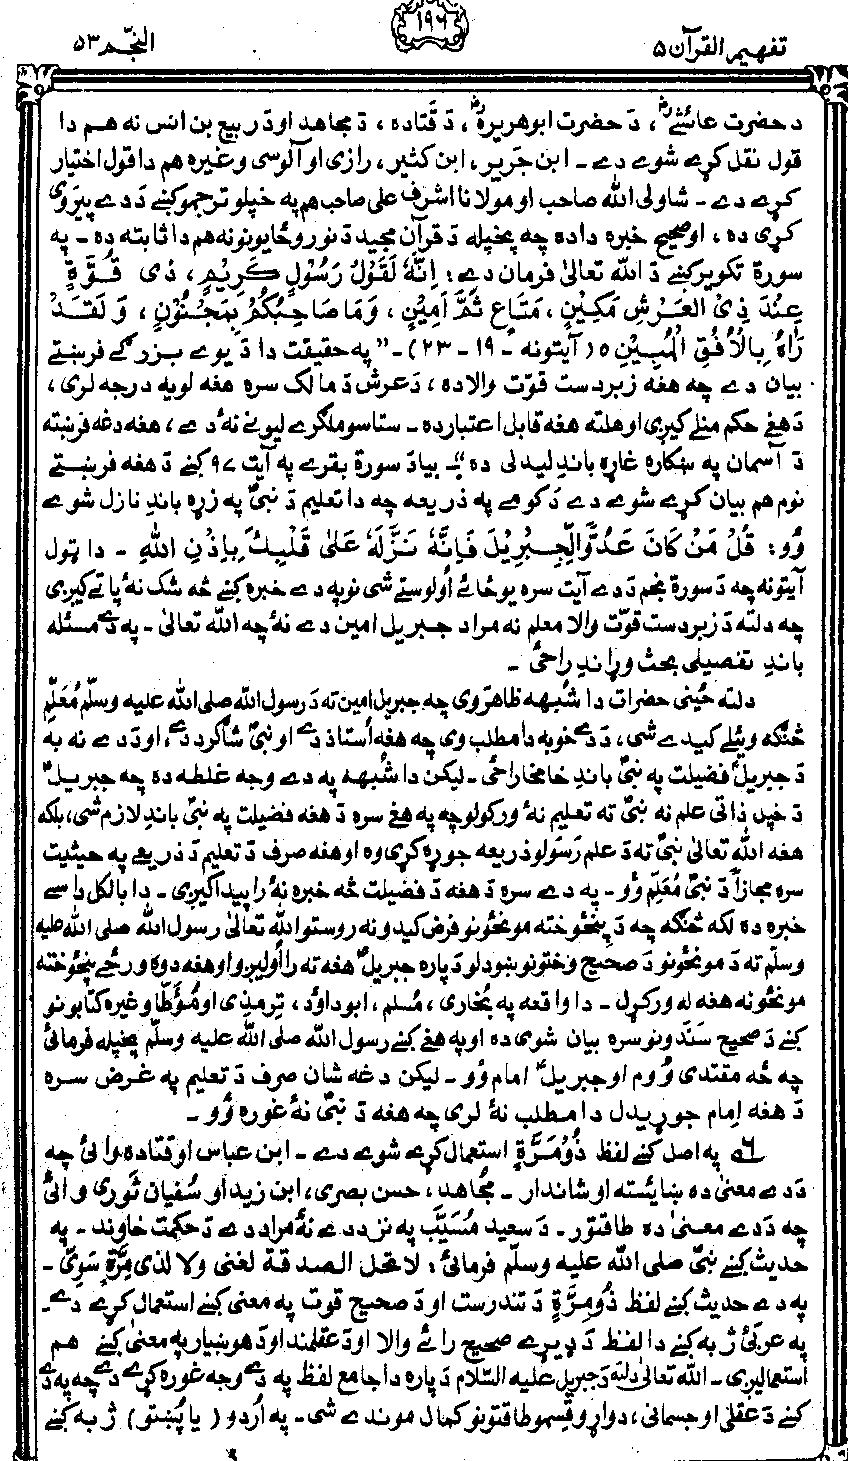 تفهيم القرآن ۵
۱۹۶
النّجم ۵۳
د حضرت عائشےؓ، دَ حضرت ابوهريرهؓ، دَ قتاده، دَ مجاهد اودَ ربيع بن انس نه هم دا
قول نقل کړے شوے دے۔ ابن جرير، ابن کثير، رازی او آلوسی وغيره هم دا قول اختيار
کړے دے۔ شاولی الله صاحب او مولانا اشرف علی صاحب هم په خپلو ترجمو کښے دَ دے پيروی
کړی ده، او صحيح خبره داده چه پخپله دَ قرآن مجيد دَ نورو ځايونو نه هم دا ثابته ده۔ په
سورة تکوير کښے دَ الله تعالیٰ فرمان دے: اِنَّهُ لَقَوْلُ رَسُوْلٍ كَرِيْمٍ، ذِی قُوَّةٍ
عِنْدَ ذِی الْعَرْشِ مَكِيْنٍ، مَتَاعٍ ثَمَّ اَمِيْنٍ، وَمَا صَاحِبُكُمْ بِمَجْنُوْنٍ، وَلَقَدْ
رَاٰهُ بِالْاُفُقِ الْمُبِيْنِ ○ (آيتونه ۔ ۱۹ ۔ ۲۳)۔ "په حقيقت دا دَ يوے بزرگے فرښتے
بيان دے چه هغه زبردست قوت والا ده، دَ عرش دَ مالک سره هغه لويه درجه لری،
دَ هغے حکم منلے کيږی او هلته هغه قابل اعتبار ده۔ ستاسو ملګرے ليونے نۀ دے، هغه دغه فرښته
دَ آسمان په ښکاره غاړه باندِ ليدلی ده"۔ بيا دَ سورة بقرے په آيت ۹۷ کښے دَ هغه فرښتے
نوم هم بيان کړے شوے دے دَ کومے په ذريعه چه دا تعليم دَ نبیؐ په زړه باندِ نازل شوے
وُو: قُلْ مَنْ كَانَ عَدُوًّا لِّجِبْرِيْلَ فَاِنَّهٗ نَزَّلَهٗ عَلٰی قَلْبِكَ بِاِذْنِ اللهِ ۔ دا ټول
آيتونه چه دَ سورة نجم دَ دے آيت سره يو ځائے اُولوستے شی نو په دے خبره کښے څه شک نۀ پاتے کيږی
چه دلته دَ زبردست قوّت والا معلم نه مراد جبريل امين دے نۀ چه الله تعالیٰ۔ په دے مسئله
باندِ تفصيلی بحث وړاندِ راځی ۔
دلته ځينی حضرات دا شُبهه ظاهروی چه جبريل امين ته دَ رسول الله صلی الله عليه وسلّم مُعَلِّم
څنګه وئيلے کيدے شی، دَ دے خو به دا مطلب وی چه هغه اُستاذ دے او نبیؐ شاګرد دے، او دَ دے نه به
دَ جبريلؑ فضيلت په نبیؐ باندِ خامخا راځی۔ ليکن دا شُبهه په دے وجه غلطه ده چه جبريلؑ
دَ خپل ذاتی علم نه نبیؐ ته تعليم نۀ ورکولو چه په هغے سره دَ هغه فضيلت په نبیؐ باندِ لازم شی، بلکه
هغه الله تعالیٰ نبیؐ ته دَ علم رَسَولو ذريعه جوړه کړی وه او هغه صرف دَ تعليم دَ ذريعے په حيثيت
سره مجازاً دَ نبیؐ مُعَلِّم وُو۔ په دے سره دَ هغه دَ فضيلت څه خبره نۀ راپيدا کيږی۔ دا بالکل داسے
خبره ده لکه څنګه چه دَ پنځو وخته مونځونو فرض کيدو نه روستو الله تعالیٰ رسول الله صلی الله عليه
وسلّم ته دَ مونځونو دَ صحيح وختونو ښودلو دَ پاره جبريلؑ هغه ته رااُوليږلو او هغه دوه ورځے پنځو وخته
مونځونه هغه له ورکړل۔ دا واقعه په بُخاری، مُسلم، ابوداؤد، ترمذی او مُؤطّا وغيره کتابونو
کښے دَ صحيح سَنَدونو سره بيان شوی ده او په هغے کښے رسول الله صلی الله عليه وسلّم پخپله فرمائی
چه څه مقتدی وُوم او جبريلؑ امام وُو۔ ليکن دغه شان صرف دَ تعليم په غرض سره
دَ هغه اِمام جوړيدل دا مطلب نۀ لری چه هغه دَ نبیؐ نۀ غوره وُو۔
۶ په اصل کښے لفظ ذُوْمِرَّةٍ استعمال کړے شوے دے۔ ابن عباس او قتاده وائی چه
دَ دے معنیٰ ده ښايسته او شاندار۔ مُجاهد، حسن بصری، ابن زيد او سُفيان ثوری وائی
چه دَ دے معنیٰ ده طاقتور۔ دَ سعيد مُسَيَّب په نزد دے نۀ مراد دے دَ حکمت خاوند۔ په
حديث کښے نبیؐ صلی الله عليه وسلّم فرمائی: لا تحل الصدقة لغنی ولا لذی مِرَّةٍ سَوِیّ۔
په دے حديث کښے لفظ ذُوْمِرَّةٍ دَ تندرست او دَ صحيح قوت په معنی کښے استعمال کړے دے۔
په عربئ ژبه کښے دا لفظ دَ ډيرے صحيح رائے والا او دَ عقلمند او دَ هوښيار په معنیٰ کښے هم
استعماليږی۔ الله تعالیٰ دلته دَ جبريل عليه السّلام دَ پاره دا جامع لفظ په دے وجه غوره کړے دے چه په دے
کښے دَ عقلی او جسمانی، دواړو قسمو طاقتونو کمال موندے شی۔ په اُردو (يا پښتو) ژبه کښے